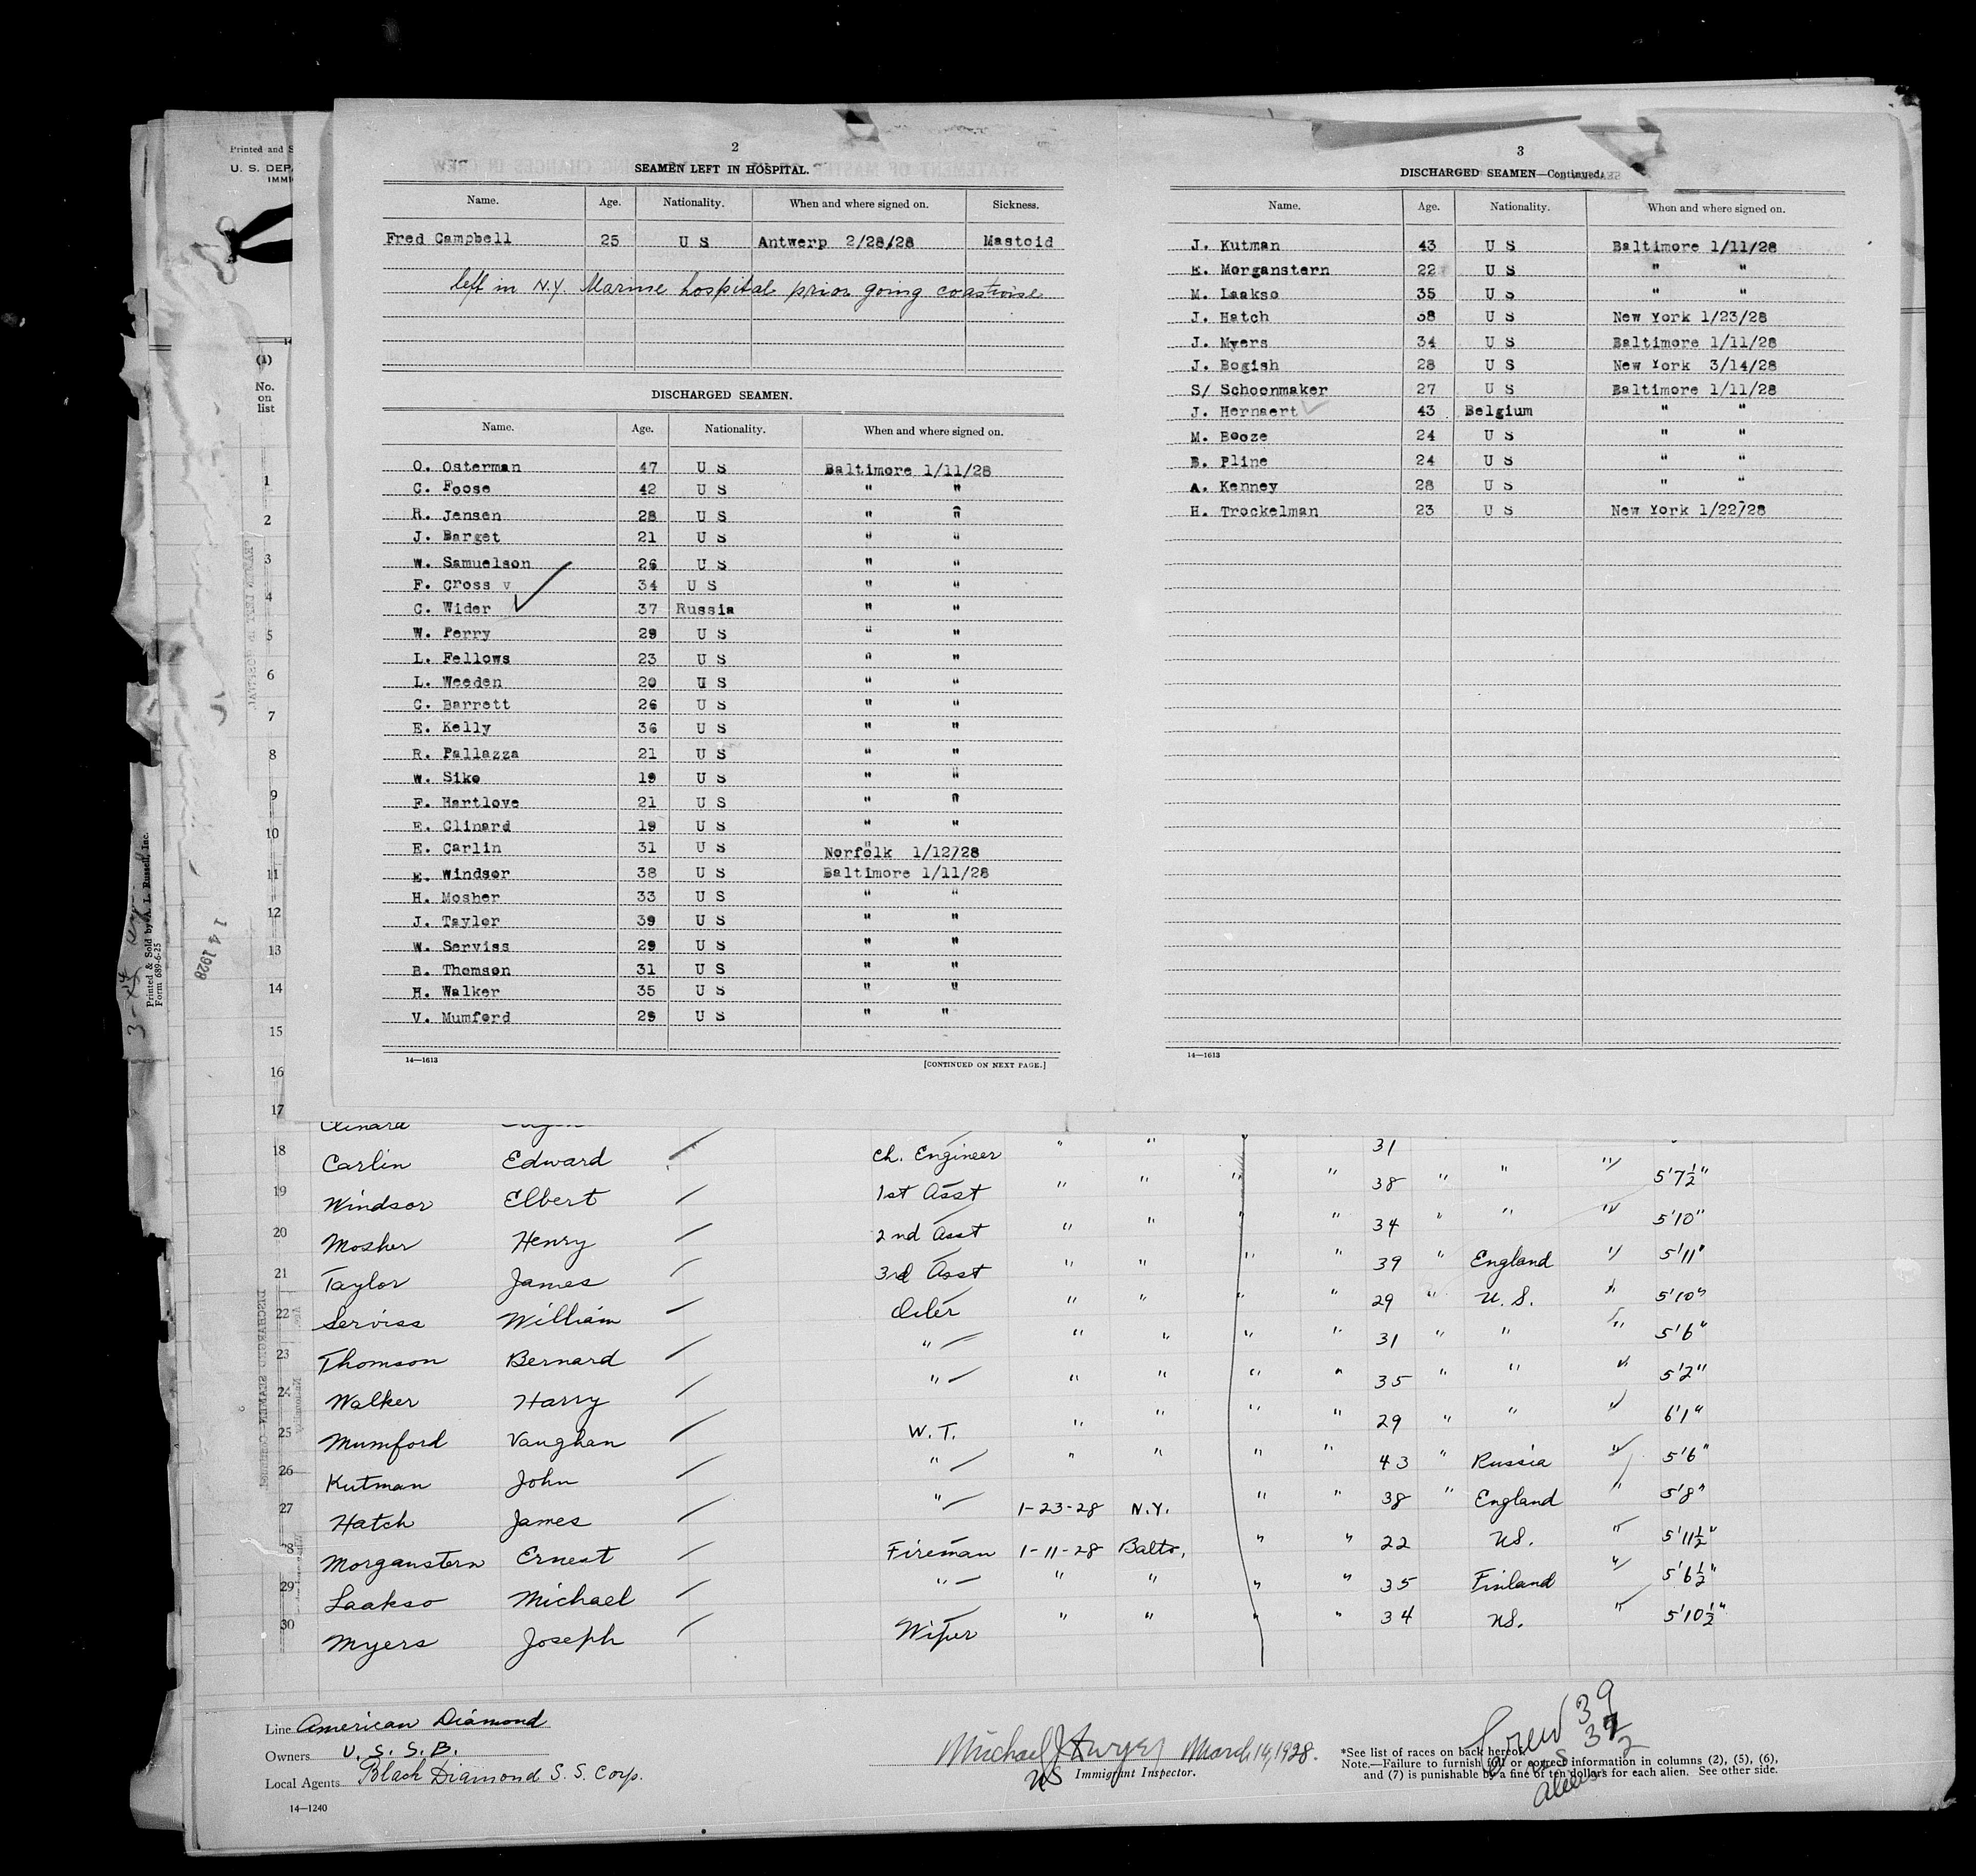 Printed and S
U. S. DEP
IMMI
(1)
No.
on
list
2
SEAMEN LEFT IN HOSPITAL.
Name. Age. Nationality. When and where signed on. Sickness.
Fred Campbell 25 U S Antwerp 2/28/28 Mastoid
left in N.Y. Marine hospital prior going coastwise
DISCHARGED SEAMEN.
Name. Age. Nationality. When and where signed on.
O. Osterman 47 U S Baltimore 1/11/28
C. Foose 42 U S " "
R. Jensen 28 U S " "
J. Barget 21 U S " "
W. Samuelson 26 U S " "
F. Cross v 34 U S " "
C. Wider 37 Russia " "
W. Perry 29 U S " "
L. Fellows 23 U S " "
L. Weeden 20 U S " "
C. Barrett 26 U S " "
E. Kelly 36 U S " "
R. Pallazza 21 U S " "
W. Siko 19 U S " "
F. Hartlove 21 U S " "
E. Clinard 19 U S " "
E. Carlin 31 U S Norfolk 1/12/28
E. Windsor 38 U S Baltimore 1/11/28
H. Mosher 33 U S " "
J. Tayler 39 U S " "
W. Serviss 29 U S " "
B. Thomson 31 U S " "
H. Walker 35 U S " "
V. Mumford 29 U S " "
14—1613 [CONTINUED ON NEXT PAGE.]
3
DISCHARGED SEAMEN—Continued.
Name. Age. Nationality. When and where signed on.
J. Kutman 43 U S Baltimore 1/11/28
E. Morganstern 22 U S " "
M. Laakso 35 U S " "
J. Hatch 38 U S New York 1/23/28
J. Myers 34 U S Baltimore 1/11/28
J. Bogish 28 U S New York 3/14/28
S/ Schoonmaker 27 U S Baltimore 1/11/28
J. Hernaert 43 Belgium " "
M. Booze 24 U S " "
B. Pline 24 U S " "
A. Kenney 28 U S " "
H. Trockelman 23 U S New York 1/22/28
14—1613
1
2
3
4
5
6
7
8
9
10
11
12
13
14
15
16
17
Printed & Sold by A. L. Russell, Inc.
Form 689-6-25
14 1928
Clinard
18 Carlin Edward Ch. Engineer " " 31
19 Windsor Elbert 1st Asst " " " " 38 " " " 5'7½"
20 Mosher Henry 2nd Asst " " " " 34 " " " 5'10"
21 Taylor James 3rd Asst " " " " 39 " England " 5'11"
22 Serviss William Oiler " " " " 29 " U. S. " 5'10"
23 Thomson Bernard " " " " " 31 " " " 5'6"
24 Walker Harry " " " " " 35 " " " 5'2"
25 Mumford Vaughan W. T. " " " " 29 " " " 6'1"
26 Kutman John " " " " " 43 " Russia " 5'6"
27 Hatch James " 1-23-28 N.Y. " " 38 " England " 5'8"
28 Morganstern Ernest Fireman 1-11-28 Balto. " " 22 US. " 5'11½"
29 Laakso Michael " " " " " 35 Finland " 5'6½"
30 Myers Joseph Wiper " " " " 34 US. " 5'10½"
Line American Diamond
Owners U. S. S. B.
Local Agents Black Diamond S. S. Corp.
14—1240
Michael J Dwyer March 14, 1928.
US Immigrant Inspector.
Crew 39
37
Aliens 2
*See list of races on back hereof.
Note.—Failure to furnish full or correct information in columns (2), (5), (6),
and (7) is punishable by a fine of ten dollars for each alien. See other side.